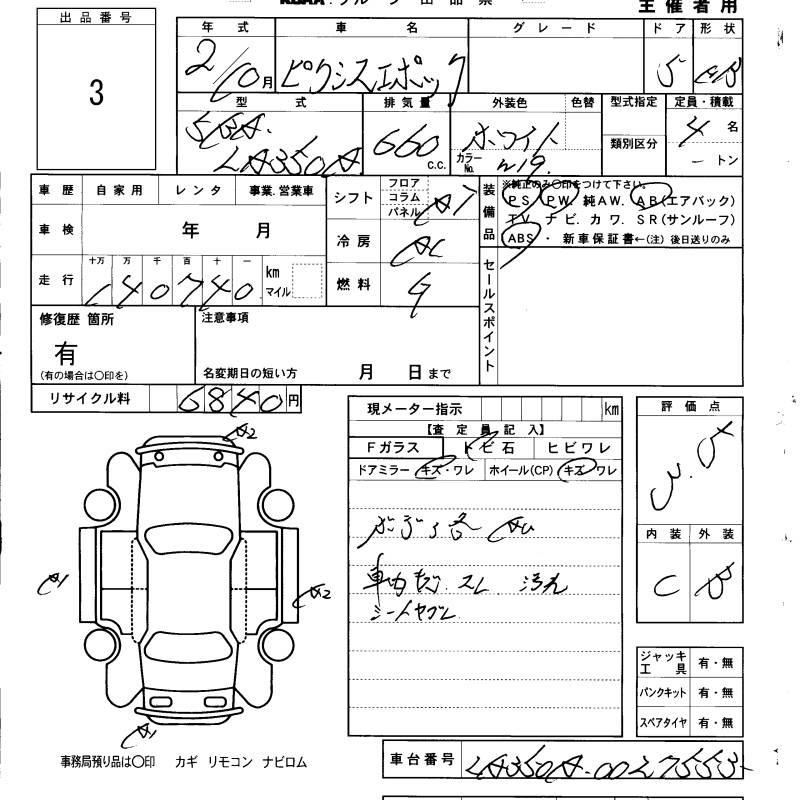 主催者用
出品番号
3
年式 車名 グレード ドア 形状
2/10月 ピクシスエポック 5 HB
型式 排気量 外装色 色替 型式指定 定員・積載
5BA-
LA350A 660 c.c. ホワイト カラーNo. W19 類別区分 4名
－トン
車歴 自家用 レンタ 事業.営業車
車検 年 月
走行 十万 万 千 百 十 一 km マイル
140740
シフト フロア コラム パネル AT
冷房 AC
燃料 G
装備品
※純正のみ○印をつけて下さい。
PS PW 純AW. AB(エアバック)
TV ナビ. カワ. SR(サンルーフ)
ABS・新車保証書←(注)後日送りのみ
セールスポイント
修復歴 箇所
有
(有の場合は○印を)
注意事項
名変期日の短い方 月 日まで
リサイクル料 6840円
現メーター指示 km
【査定員記入】
Fガラス トビ石 ヒビワレ
ドアミラー キズ・ワレ ホイール(CP) キズ ワレ
車内 スレ 汚れ
シートヤブレ
評価点
3.5
内装 外装
C B
A2
A1
A2
A1
ジャッキ工具 有・無
パンクキット 有・無
スペアタイヤ 有・無
事務局預り品は○印 カギ リモコン ナビロム
車台番号 LA350A-0027553